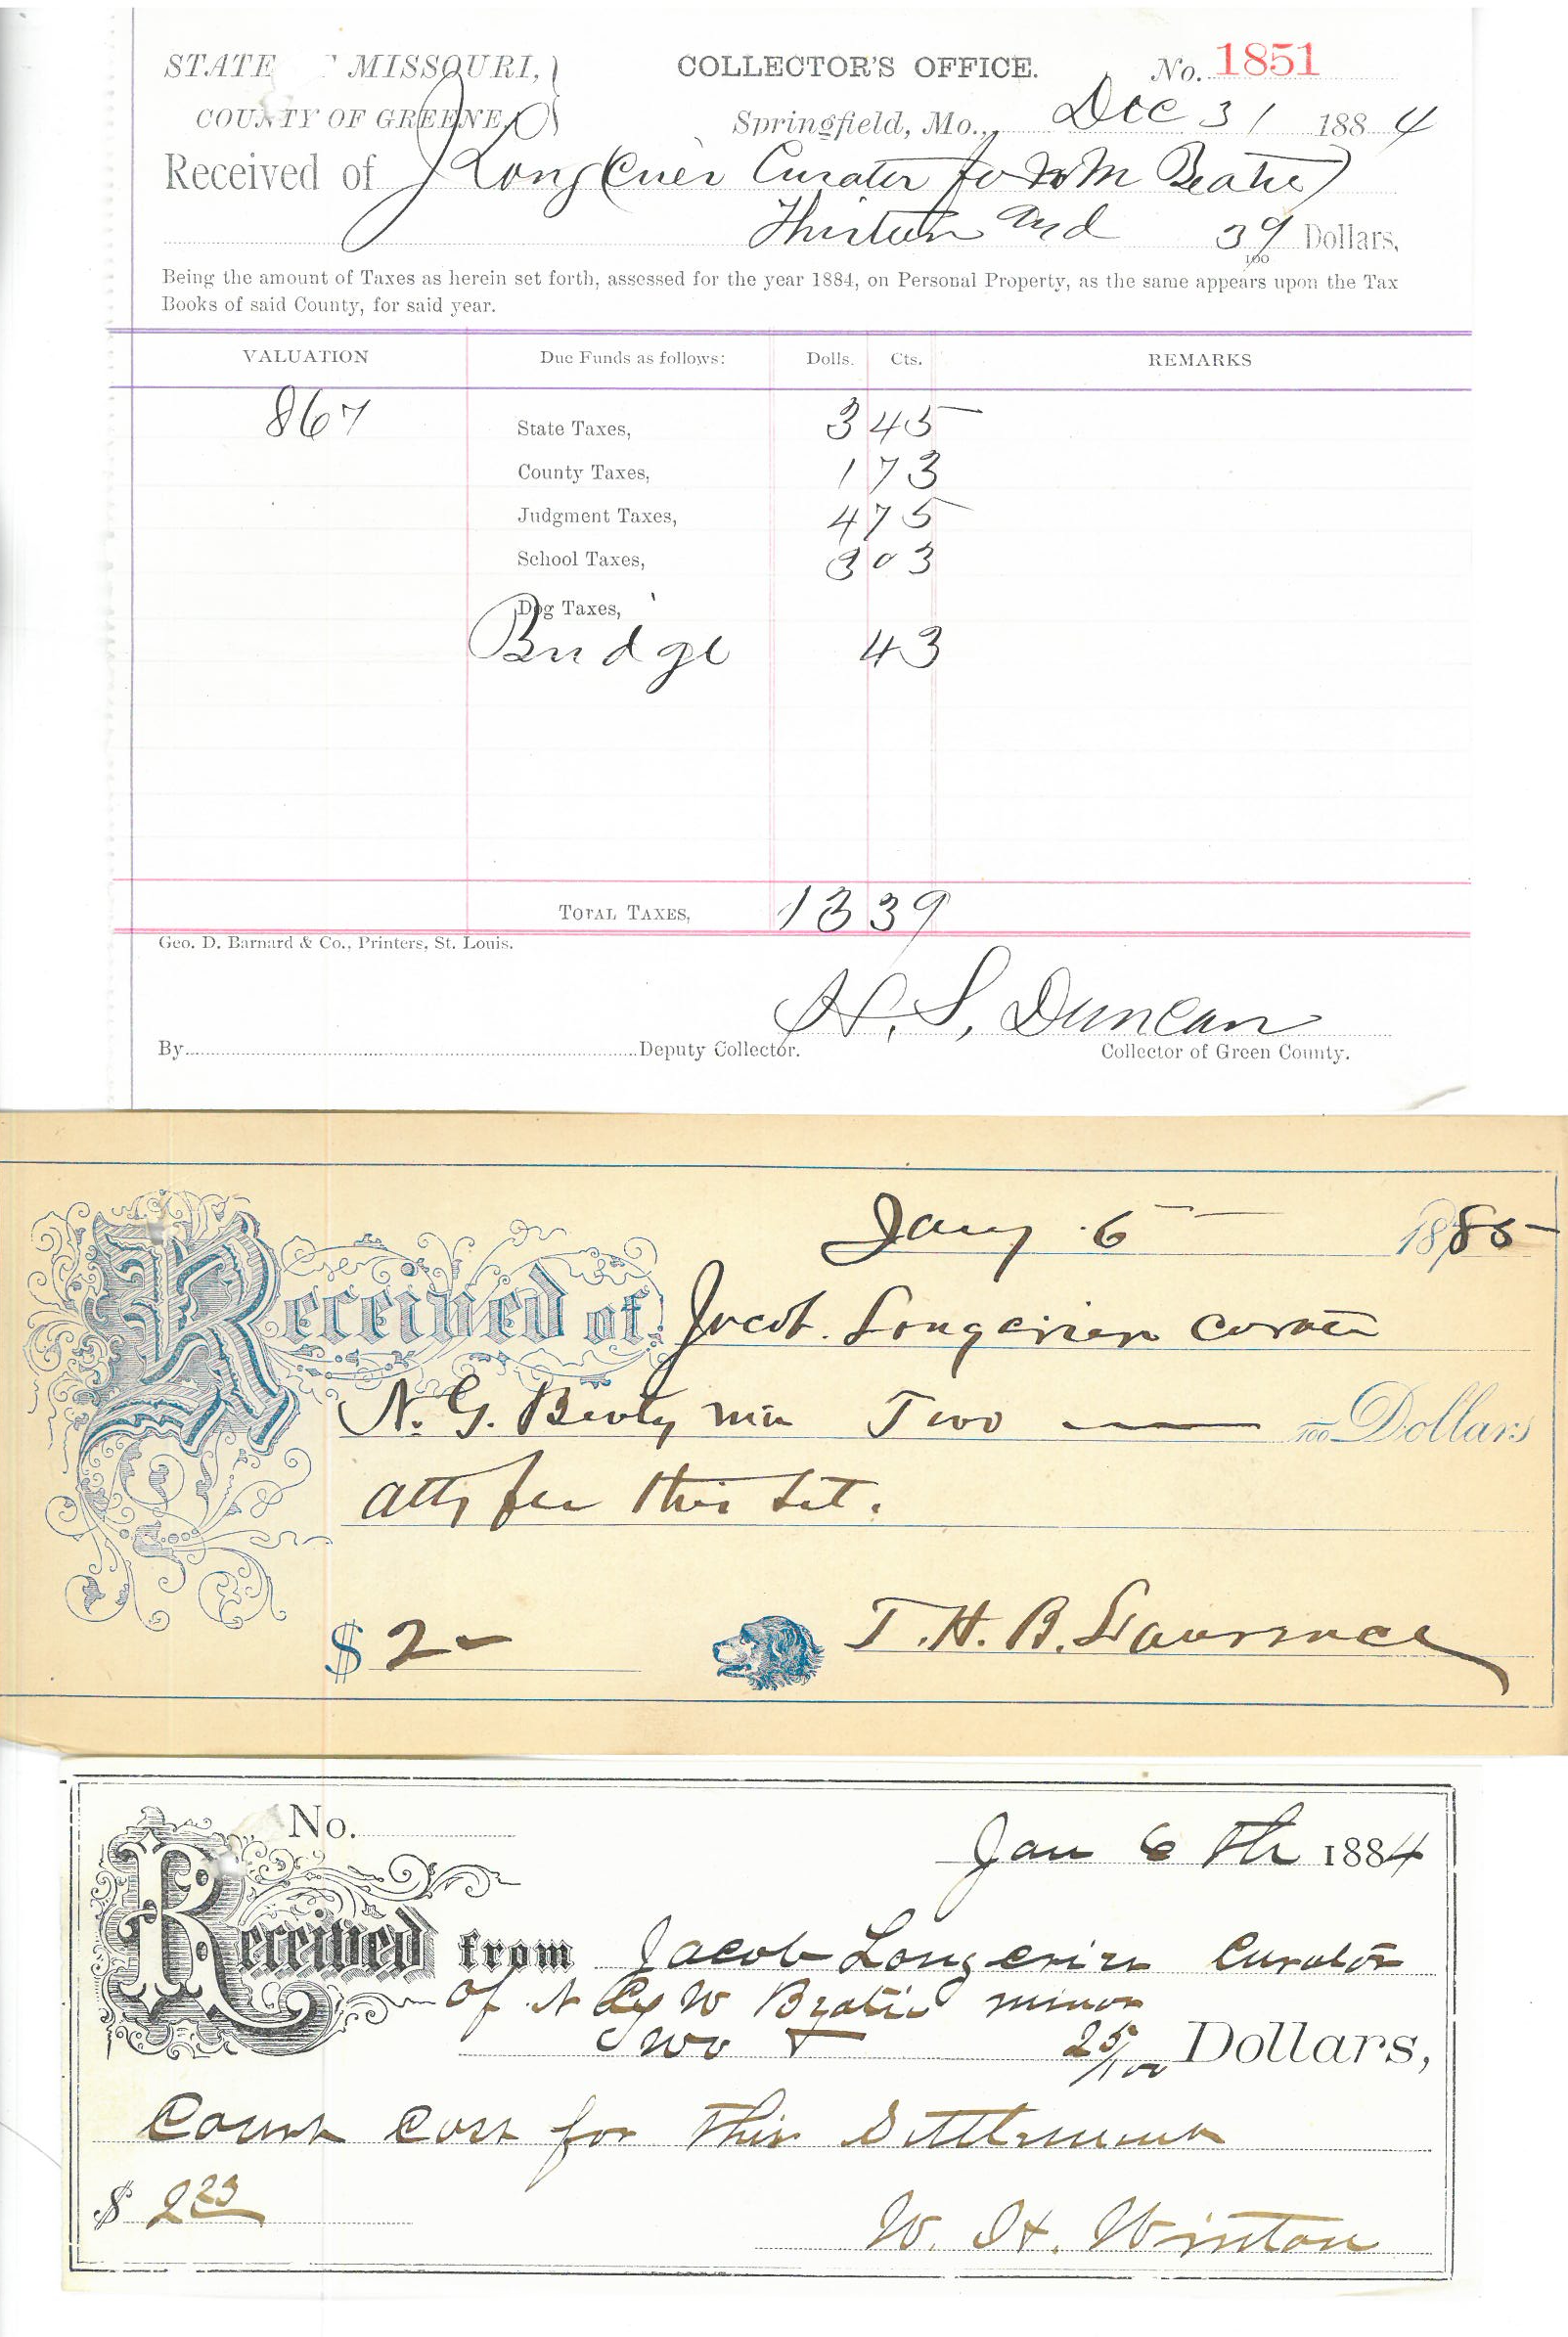 STATE OF MISSOURI,
COUNTY OF GREENE,
COLLECTOR'S OFFICE.
No. 1851
Springfield, Mo., Dec 31 1884
Received of J Longcrier Curator for Wm Beatie
Thirteen and 39/100 Dollars,
Being the amount of Taxes as herein set forth, assessed for the year 1884, on Personal Property, as the same appears upon the Tax
Books of said County, for said year.
VALUATION Due Funds as follows: Dolls. Cts. REMARKS
867 State Taxes, 3 45
County Taxes, 1 73
Judgment Taxes, 4 75
School Taxes, 3 03
Dog Taxes,
Bridge 43
TOTAL TAXES, 13 39
Geo. D. Barnard & Co., Printers, St. Louis.
H. S. Duncan
By Deputy Collector. Collector of Green County.
Jany 6 1885
Received of Jacob Longcrier curator
N. G. Beaty min Two /100 Dollars
atty fee this set.
$ 2 T. H. B. Lawrence
No. Jan 6 th 1884
Received from Jacob Longcrier Curator
Of N W Beatie minor
Two + 25/100 Dollars,
Court Cost for this Settlement
$ 2 25
W. H. Winton